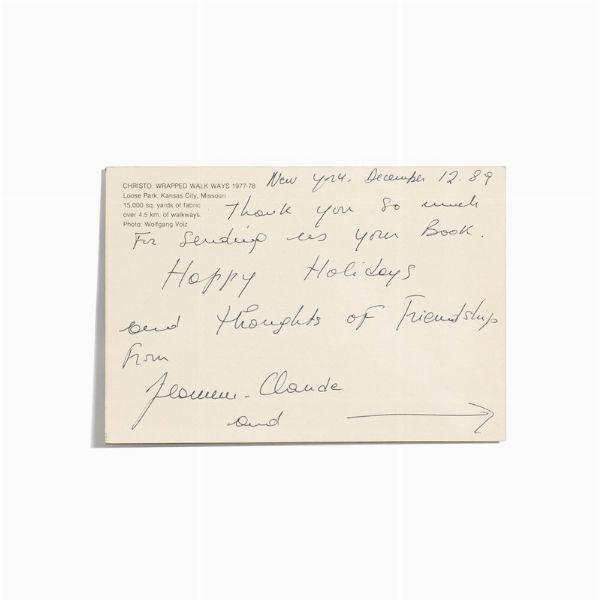 CHRISTO: WRAPPED WALK WAYS 1977-78
Loose Park, Kansas City, Missouri
15,000 sq. yards of fabric
over 4.5 km. of walkways.
Photo: Wolfgang Volz
New York. December 12. 89
Thank you so much
For sending us your Book.
Happy Holidays
and thoughts of Friendship
from
Jeanne-Claude
and